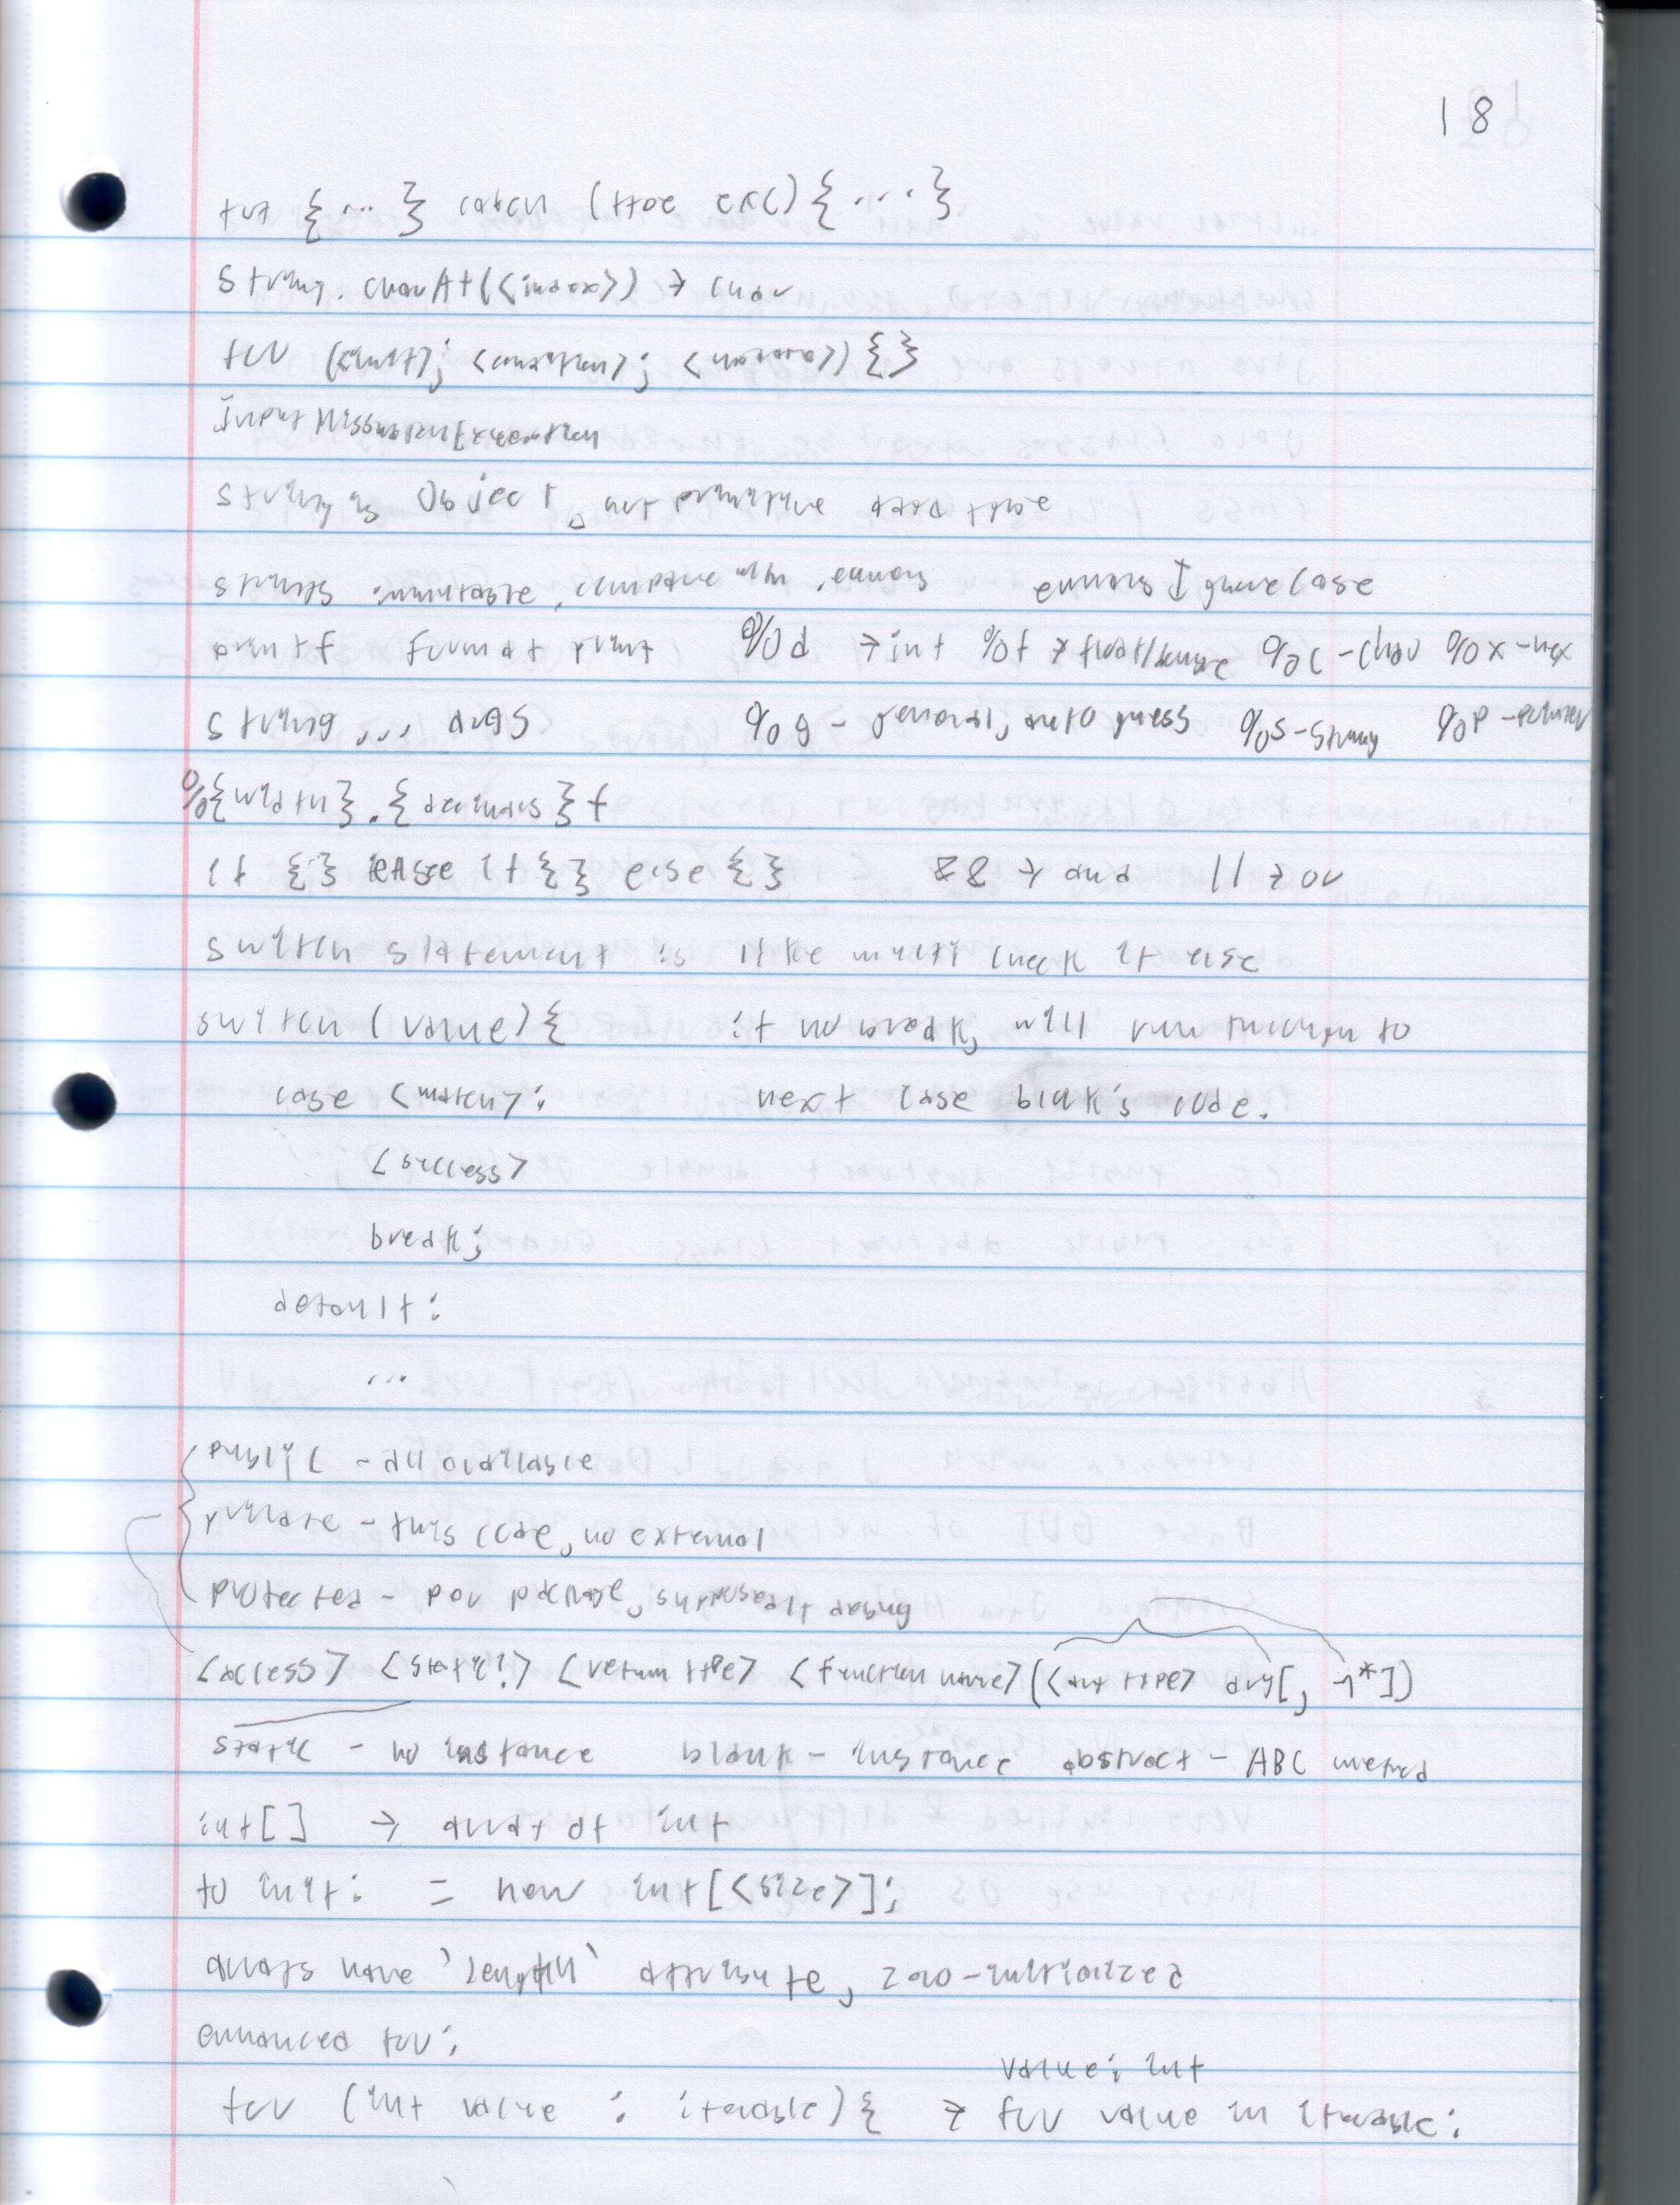 18
try {...} catch (type exc) {...}
String.charAt(<index>) → char
for (<init>; <condition>; <update>) {}
InputMismatchException
String is Object, not primitive data type
strings immutable, compare with .equals equalsIgnoreCase
printf format print %d → int %f → float/double %c - char %x - hex
string, ... args %g - general, auto guess %s - string %p - pointer
%{width}.{decimals}f
if {} else if {} else {} && → and || → or
switch statement is like multi check if else
switch (value) { if no break, will run through to
case <match>: next case block's code.
<success>
break;
default:
...
public - all available
private - this code, no external
protected - per package, supposedly debug
<access> <static?> <return type> <function name>(<arg type> arg[, ^*])
static - no instance blank - instance abstract - ABC method
int[] → array of int
to init: = new int[<size>];
arrays have `length` attribute, zero-initialized
enhanced for:
value: int
for (int value : iterable) { → for value in iterable: